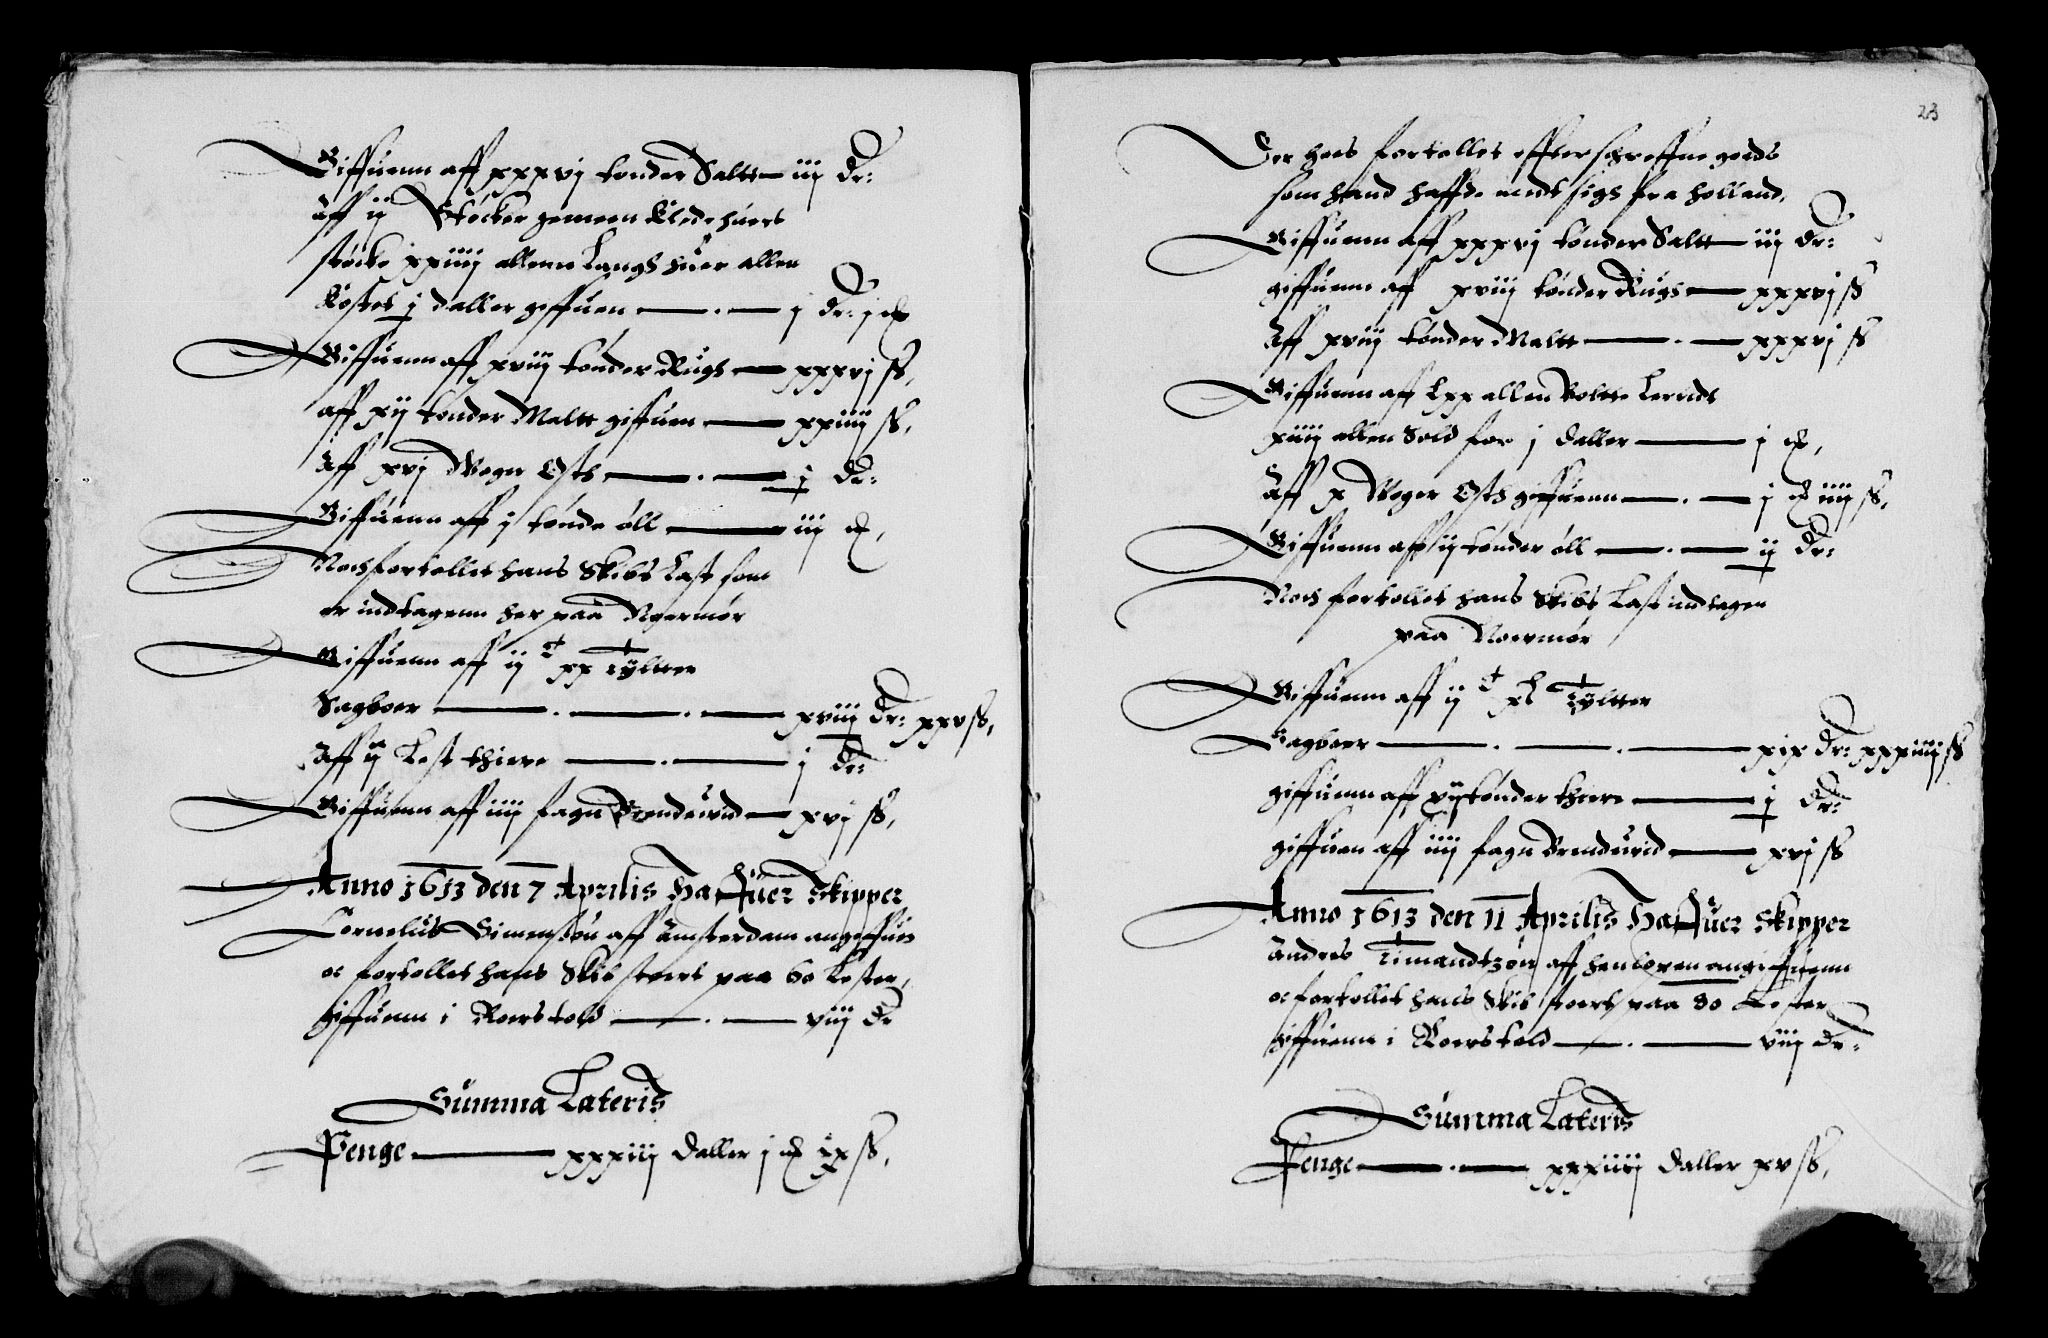 Giffuenn aff xxxvj tønder Saltt iij dr:
Aff ij Støcker gemeen Klede huert
støcke xxiiij allenn Langh huer allen
Kostet j daller giffuen j dr: j
Giffuenn aff xviij tønder Rugh xxxvj ß,
aff xij tønder Maltt giffuen xxiiij ß,
Aff xvj Woger Osth j dr:
Giffuenn aff j tønde øll iij
Noch fortollet hans Skibs Last som
er indtagenn her paa Nermør
Giffuenn aff ij C xx tyltter
Sagboer xviij dr: xxv ß,
Aff ij Lest thiere j dr:
Giffuenn aff iiij fagn Brendeuid xvj ß,
Anno 1613 den 7 Aprilis Haffuer Skipper
Cornelius Simensøn aff Amsterdam angiffuit
oc fortollet hans Skib stoert paa 60 Lester,
giffuenn i Roerstold viij dr
Summa Lateris
Penge xxxiiij daller j ix ß,
23
Der hoes fortollet effterschreffne goeds
som hand haffde medt sigh fra Holland,
Giffuenn aff xxxvj tønder Saltt iij dr:
giffuenn aff xviij tønder Rugh xxxvj ß
Aff xviij tønder Maltt xxxvj ß
Giffuenn aff Lxx allen Leridt
xiiij allen Sold for j daller j
Aff x Woger Osth giffuenn j iiij ß,
Giffuenn aff ij tønder øll ij dr:
Noch fortollet hans Skibs Last indtagen
paa Noermør
Giffuenn aff ij C xl Tyltter
Sagboer xix dr: xxxiiij ß
giffuenn aff xij tønder thiere j dr:
giffuen aff iiij fagn Brendeuid xvj ß
Anno 1613 den 11 Aprilis Haffuer Skipper
Andres Timandtzøn aff angiffuenn
oc fortollet hans Skib stoert paa 80 Lester
giffuenn i Roerstold viij dr:
Summa Lateris
Penge xxxiiij daller xv ß,